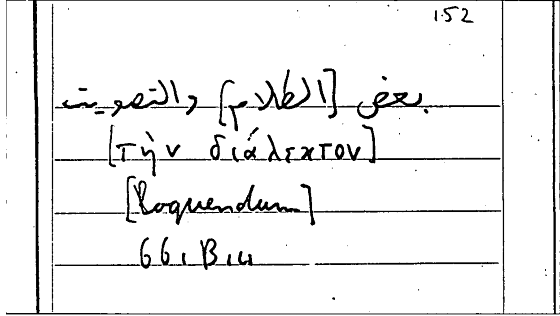 152
بعض [الكلام] والتصويت
[τὴν διάλεκτον]
[loquendum]
661 B 14